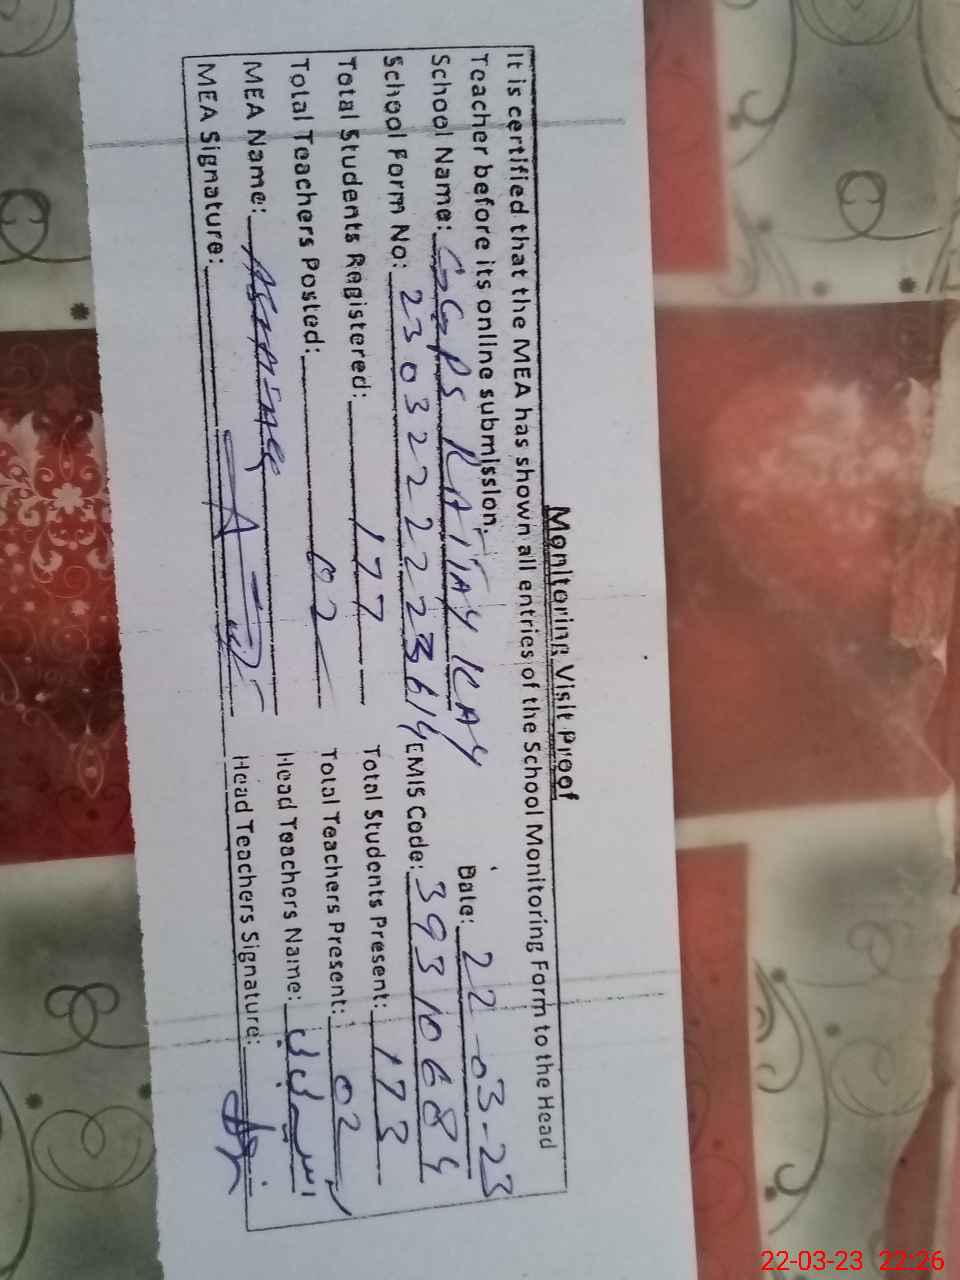 Monitoring Visit Proof
It is certified that the MEA has shown all entries of the School Monitoring Form to the Head
Teacher before its online submission.
Date: 22-03-23
School Name: GGPS
School Form No: EMIS Code: 39310684
Total Students Registered: 177 Total Students Present: 173
Total Teachers Posted: 02 Total Teachers Present: 02
MEA Name: Head Teachers Name:
MEA Signature: Head Teachers Signature:
22-03-23 22:26